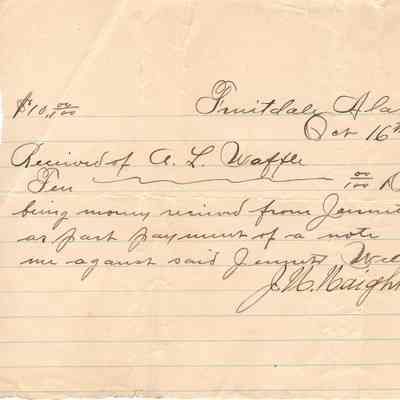 $10,00/100 Fruitdale, Ala
Oct 16th
Received of A. L. Waffle
Ten 00/100 D
being money recived from Jennit
as part payment of a note
me against said Jennets Wil